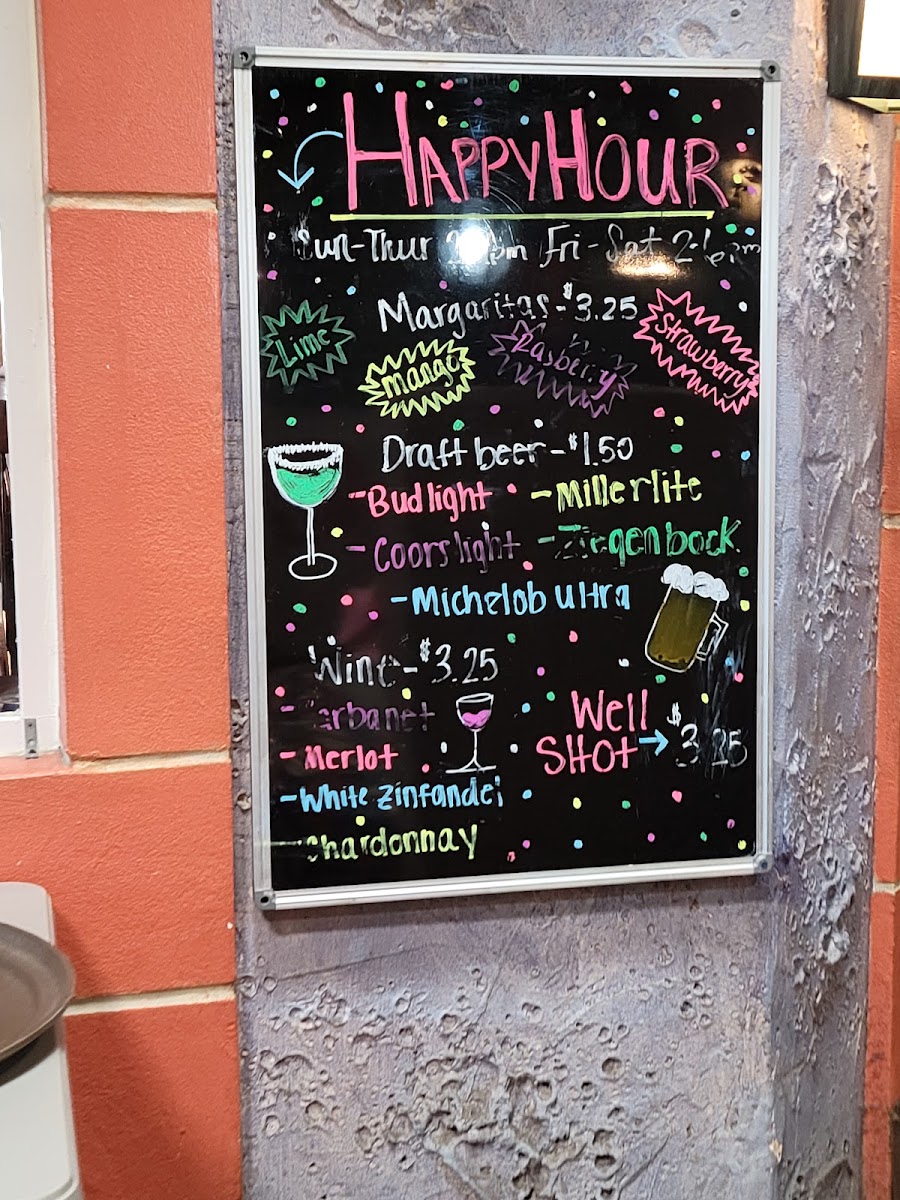 HAPPY HOUR
Sun-Thur pm Fri-Sat
Margaritas-$3.25
Lime
mango
Rasberry
Strawberry
Draft beer-$1.50
-Bud light -Miller lite
-Coors light -Ziegen bock
-Michelob ultra
Wine-$3.25
- erbanet
-Merlot
-White Zinfandel
Chardonnay
Well
SHOT→ $3.25